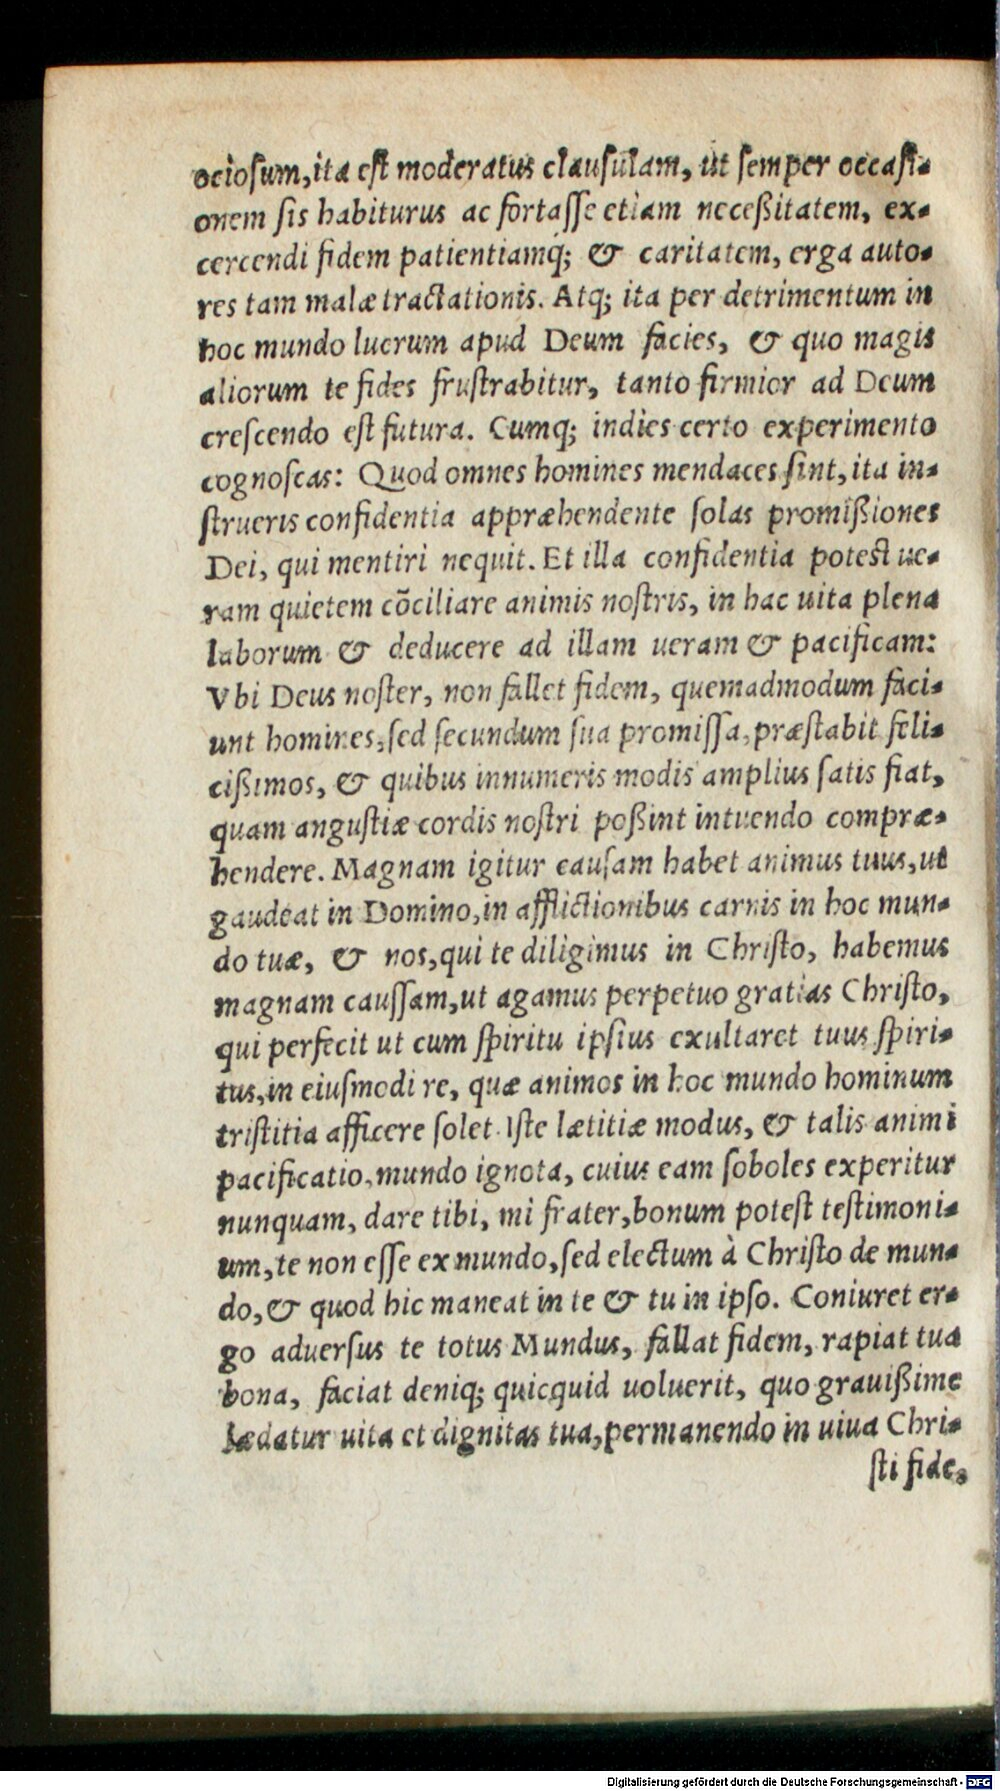 ociosum, ita est moderatus clausulam, ut semper occasi-
onem sis habiturus ac fortasse etiam neceßitatem, ex-
cercendi fidem patientiamq; & caritatem, erga auto-
res tam malæ tractationis. Atq; ita per detrimentum in
hoc mundo lucrum apud Deum facies, & quo magis
aliorum te fides frustrabitur, tanto firmior ad Deum
crescendo est futura. Cumq; indies certo experimento
cognoscas: Quod omnes homines mendaces sint, ita in-
strueris confidentia appræhendente solas promißiones
Dei, qui mentiri nequit. Et illa confidentia potest ue-
ram quietem cõciliare animis nostris, in hac uita plena
laborum & deducere ad illam ueram & pacificam:
Vbi Deus noster, non fallet fidem, quemadmodum faci-
unt homines, sed secundum sua promissa, præstabit feli-
cißimos, & quibus innumeris modis amplius satis fiat,
quam angustiæ cordis nostri poßint intuendo compræ-
hendere. Magnam igitur causam habet animus tuus, ut
gaudeat in Domino, in afflictionibus carnis in hoc mun-
do tuæ, & nos, qui te diligimus in Christo, habemus
magnam caussam, ut agamus perpetuo gratias Christo,
qui perfecit ut cum spiritu ipsius exultaret tuus spiri-
tus, in eiusmodi re, quæ animos in hoc mundo hominum
tristitia afficere solet. Iste lætitiæ modus, & talis animi
pacificatio, mundo ignota, cuius eam soboles experitur
nunquam, dare tibi, mi frater, bonum potest testimoni-
um, te non esse ex mundo, sed electum à Christo de mun-
do, & quod hic maneat in te & tu in ipso. Coniuret er-
go aduersus te totus Mundus, fallat fidem, rapiat tua
bona, faciat deniq; quicquid uoluerit, quo grauißime
lædatur uita et dignitas tua, permanendo in uiua Chri-
sti fide,
Digitalisierung gefördert durch die Deutsche Forschungsgemeinschaft - DFG